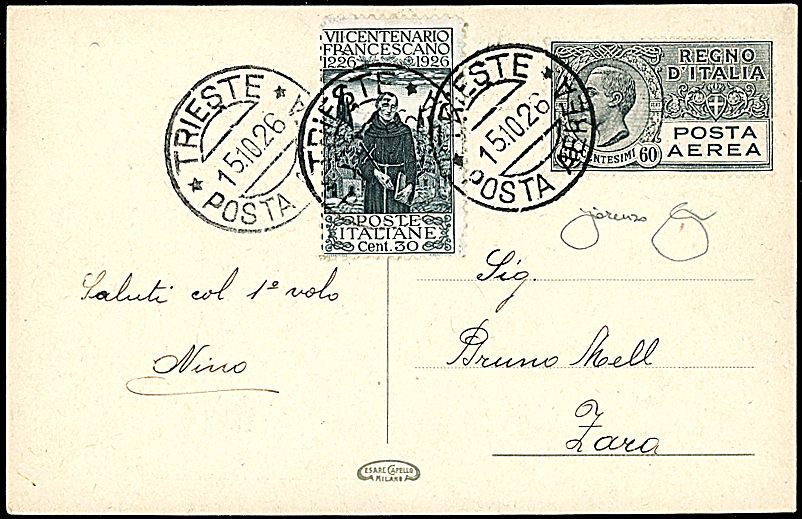 VII CENTENARIO
FRANCESCANO
1226 1926
POSTE
ITALIANE
Cent. 30
TRIESTE
15.10.26
POSTA A
TRIESTE
TRIESTE
15.10.26
POSTA AEREA
REGNO
D'ITALIA
POSTA
AEREA
CENTESIMI 60
Saluti col 1º volo
Nino
Sig.
Bruno Mell
Zara
CESARE CAPELLO
MILANO